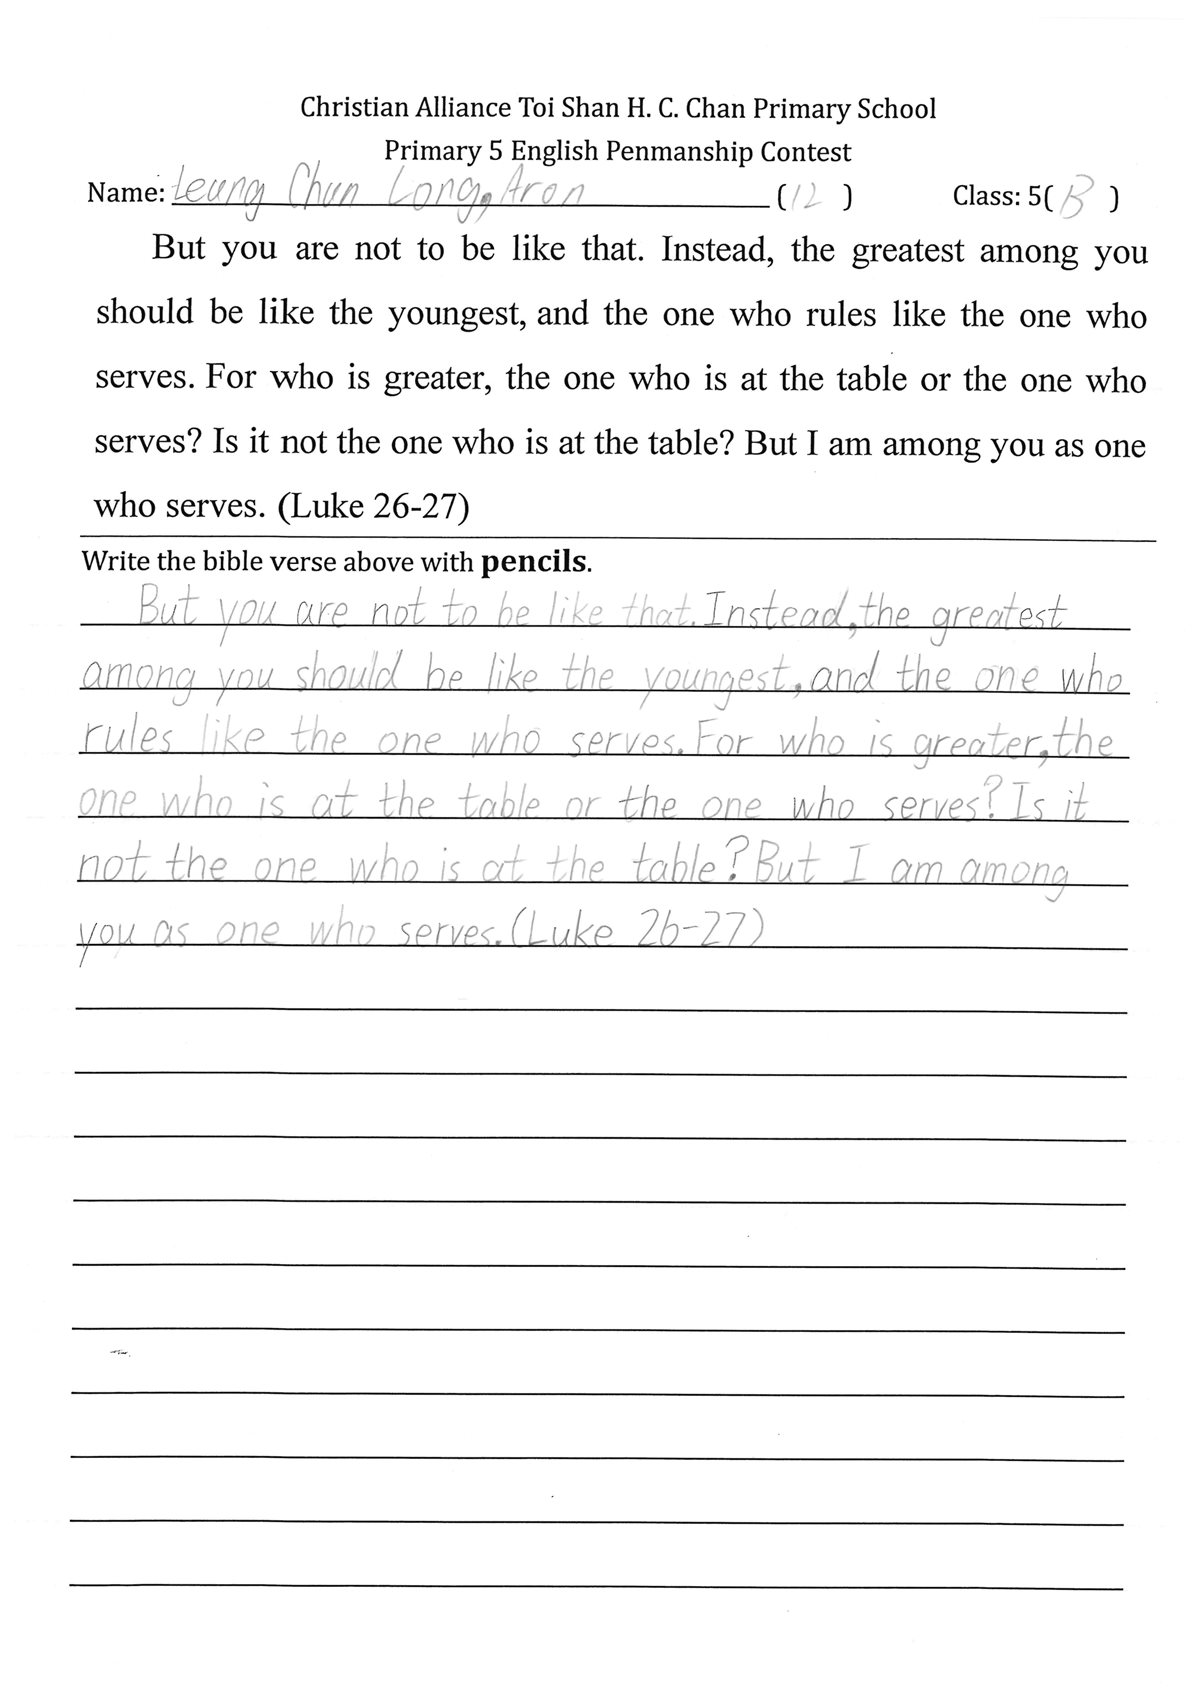 Christian Alliance Toi Shan H. C. Chan Primary School
Primary 5 English Penmanship Contest
Name: Leung Chun Long, Aron (12) Class: 5(B)
But you are not to be like that. Instead, the greatest among you
should be like the youngest, and the one who rules like the one who
serves. For who is greater, the one who is at the table or the one who
serves? Is it not the one who is at the table? But I am among you as one
who serves. (Luke 26-27)
Write the bible verse above with pencils.
But you are not to be like that. Instead, the greatest
among you should be like the youngest, and the one who
rules like the one who serves. For who is greater, the
one who is at the table or the one who serves? Is it
not the one who is at the table? But I am among
you as one who serves. (Luke 26-27)